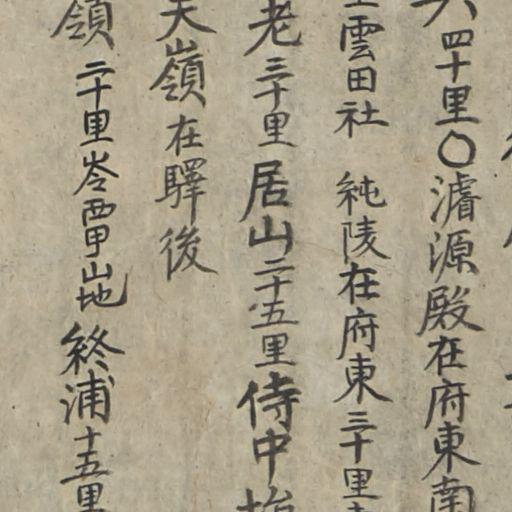 四十里〇濬源殿在府東南
雲田社 純陵在府東三十里
老三十里居山二十五里侍中
天嶺在驛後
領二十里岺西甲山地終浦十五里